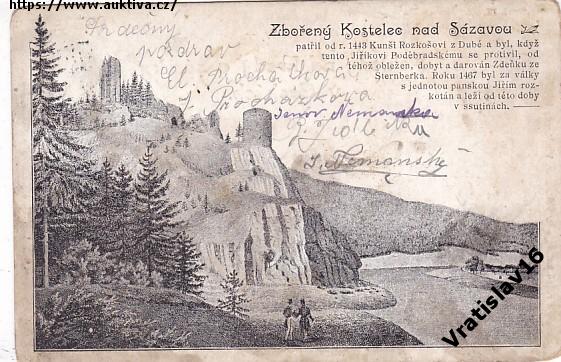 https://www.auktiva.cz/
Zbořený Kostelec nad Sázavou
patřil od r. 1443 Kunši Rozkošovi z Dubé a byl, když
tento Jiříkovi Poděbradskému se protivil, od
téhož obležen, dobyt a darován Zdeňku ze
Šternberka. Roku 1467 byl za války
s jednotou panskou Jiřím roz-
kotán a leží od této doby
v ssutinách.
Srdečný
pozdrav
Procházková
J. Procházková
Nemanská
J. Nemanský
Vratislav16